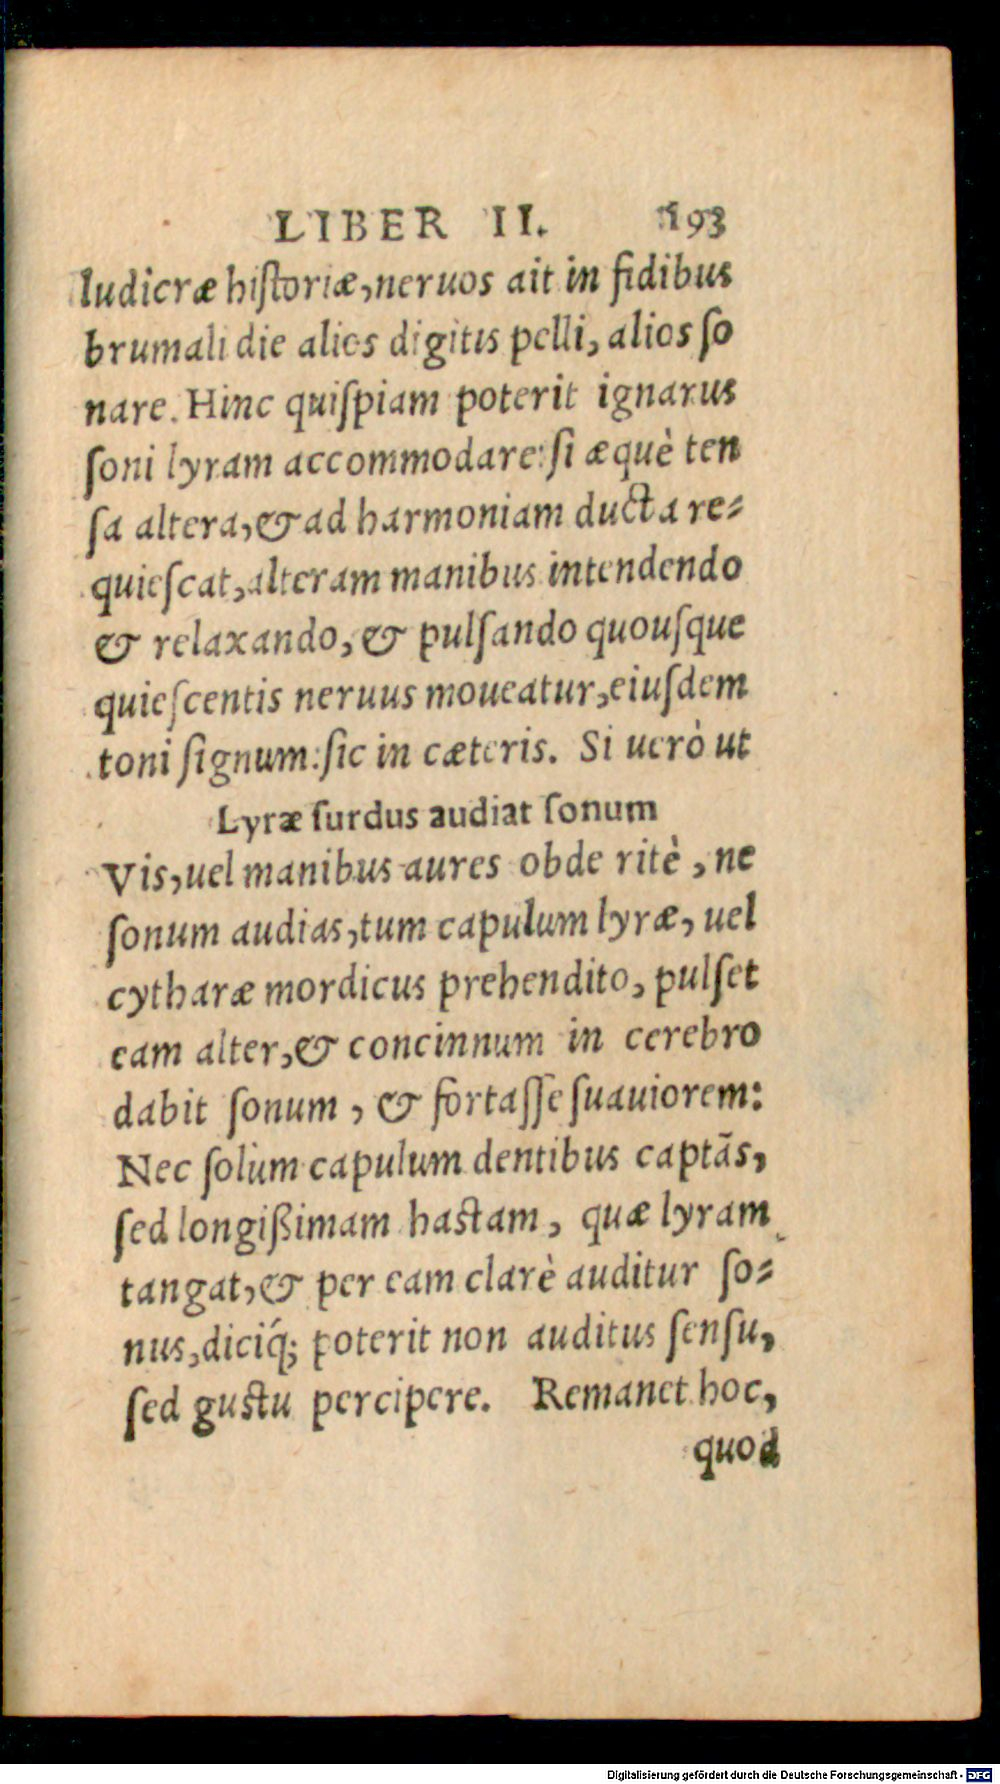 LIBER II. 193
ludicræ hiſtoriæ, neruos ait in fidibus
brumali die alios digitis pelli, alios ſo
nare. Hinc quiſpiam poterit ignarus
ſoni lyram accommodare: ſi æquè ten
ſa altera, & ad harmoniam ducta re-
quieſcat, alteram manibus intendendo
& relaxando, & pulſando quouſque
quieſcentis neruus moueatur, eiuſdem
toni ſignum: ſic in cæteris. Si uerò ut
Lyræ ſurdus audiat ſonum
Vis, uel manibus aures obde ritè, ne
ſonum audias, tum capulum lyræ, uel
cytharæ mordicus prehendito, pulſet
eam alter, & concinnum in cerebro
dabit ſonum, & fortaſſe ſuauiorem:
Nec ſolùm capulum dentibus captãs,
ſed longißimam haſtam, quæ lyram
tangat, & per eam clarè auditur ſo-
nus, diciq́; poterit non auditus ſenſu,
ſed guſtu percipere. Remanet hoc,
quod
Digitalisierung gefördert durch die Deutsche Forschungsgemeinschaft - DFG